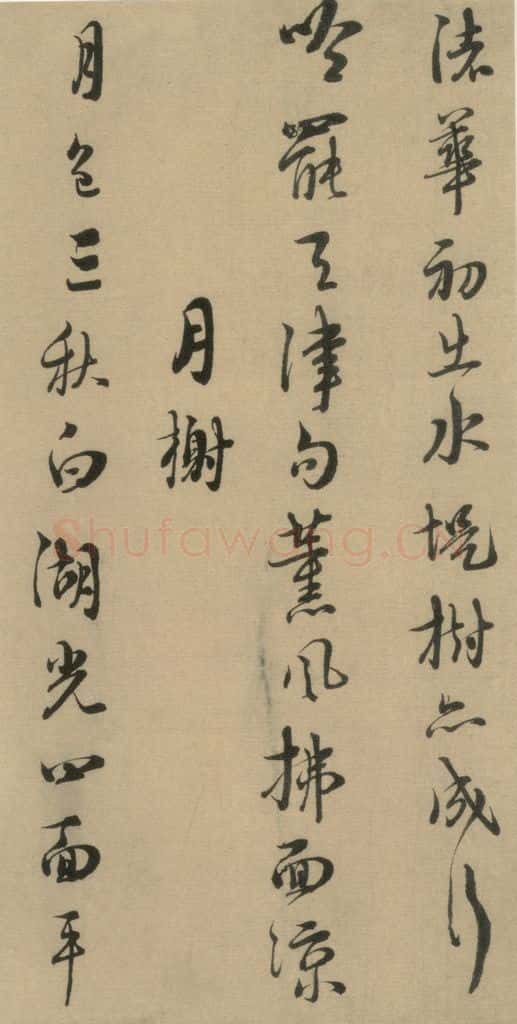 渚華初出水堤樹亦成行
吟罷天津句薰風拂面涼
月榭
月色三秋白湖光四面平
Shufawang.CN